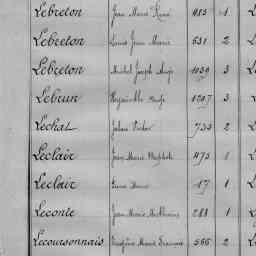 Lebreton Jean Marie René 485 1
Lebreton Louis Jean Marie 531 2
Lebreton Michel Joseph 1039 3
Lebrun 1217 3
Lechat Julien Victor 733 2
Leclair Jean Marie Baptiste 475 1
Leclair Pierre Marie 17 1
Leconte Jean Marie Mathurin 288 1
Lecoursonnais Marie François 566 2